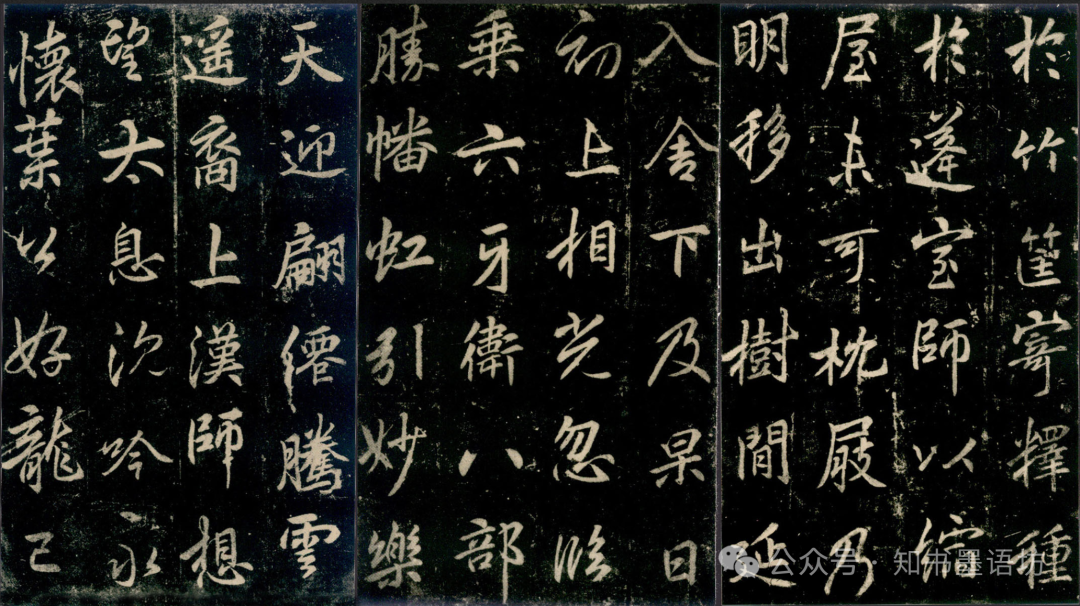 於竹筐寄釋種
於蓬室師以
屋未可枕屐乃
明移出樹間延
入舍下及杲日
初上相光忽臨
乘六牙衛八部
勝幡虹引妙樂
天迎翩僊騰雲
遥裔上漢師想
望太息沈吟永
懷葉公好龍已
公众号·知书墨语坊